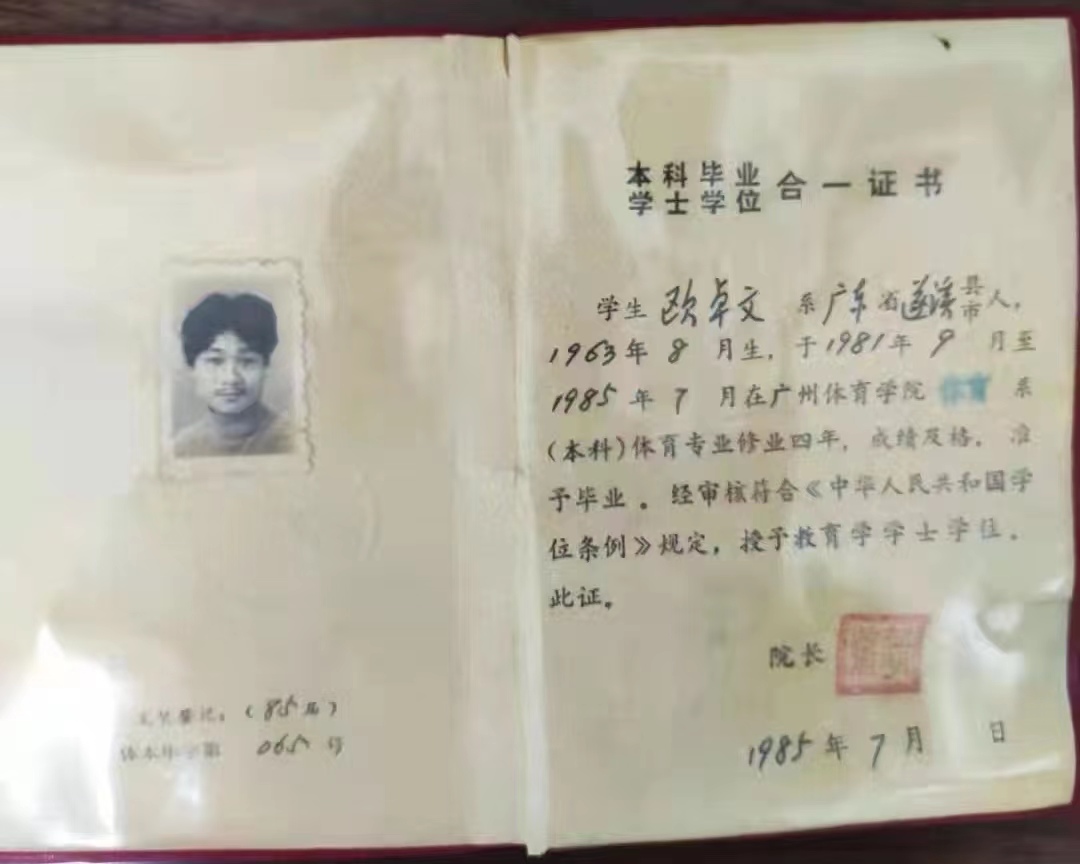 (85届)
体本毕字第 065 号
本科毕业
学士学位 合一证书
学生 欧卓文 系广东省遂溪县市人,
1963年 8 月生, 于1981年 9 月至
1985年 7 月在广州体育学院 体育 系
(本科)体育专业修业四年, 成绩及格。准
予毕业。经审核符合《中华人民共和国学
位条例》规定, 授予教育学学士学位。
此证。
院长
1985年 7 月 日